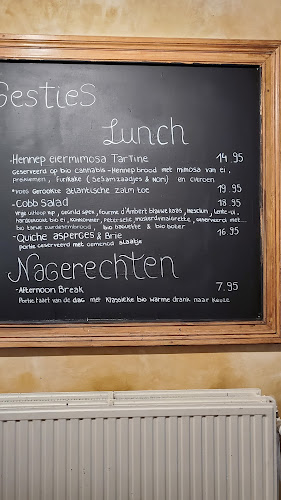 Gesties
Lunch
-Hennep eiermimosa Tartine 14.95
Geserveerd op bio cannabis-Hennepbrood met mimosa van ei,
prei, furikake (sesamzaadjes & Nori) en citroen
*voeg Gerookte atlantische zalm toe 19.95
-Cobb Salad 18.95
vrije uitloop kip, gezond spek, fourme d'Ambert blauwe kaas, mesclun, lente-ui,
hardgekookt bio ei, komkommer, peterselie, mosterdvinaigrette, geserveerd met
bio tarwe zuurdesembrood, bio baguette & bio boter
-Quiche asperges & Brie 16.95
portie geserveerd met gemengd slaatje
Nagerechten
-Afternoon Break 7.95
Portie taart van de dag met klassieke bio warme drank naar keuze